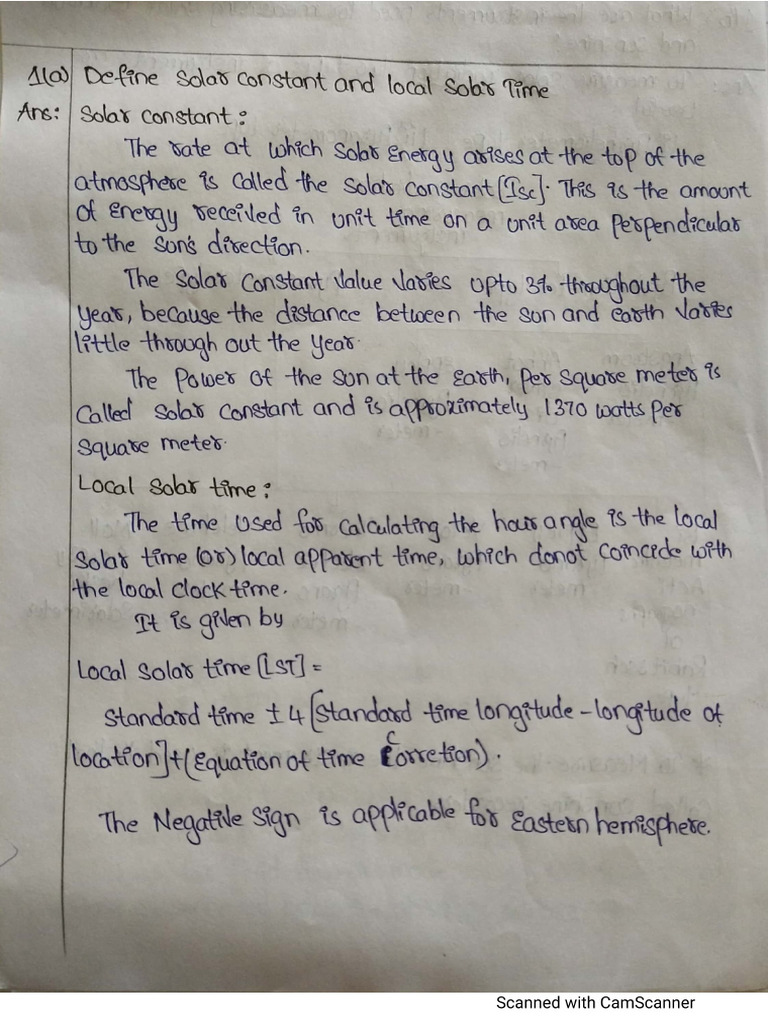 1(a) Define Solar constant and local Solar Time
Ans: Solar constant :
The rate at which Solar Energy arises at the top of the
atmosphere is called the Solar constant [Isc]. This is the amount
of Energy received in unit time on a unit area perpendicular
to the sun's direction.
The Solar Constant Value Varies upto 3% throughout the
year, because the distance between the sun and earth Varies
little through out the year.
The Power of the sun at the earth, per square meter is
called solar constant and is approximately 1370 watts per
square meter.
Local Solar time :
The time used for calculating the hour angle is the local
Solar time (or) local apparent time, which donot coincide with
the local clock time.
It is given by
Local Solar time [LST] =
Standard time ± 4 [Standard time longitude - longitude of
location] + (Equation of time Corretion).
The Negative Sign is applicable for Eastern hemisphere.
Scanned with CamScanner